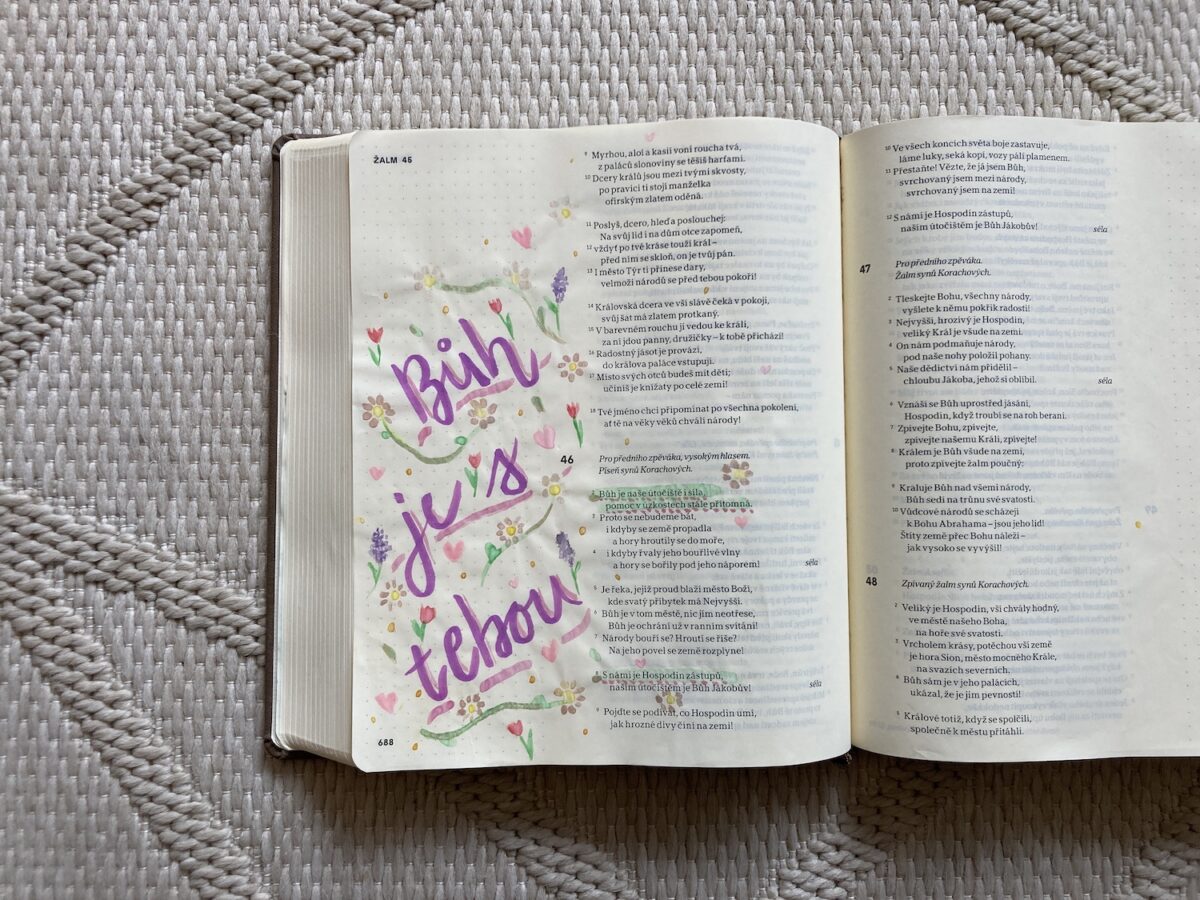 ŽALM 45
Bůh
je s
tebou
688
9 Myrhou, aloí a kasií voní roucha tvá,
z paláců slonoviny se těšíš harfami.
10 Dcery králů jsou mezi tvými skvosty,
po pravici ti stojí manželka
ofirským zlatem oděná.
11 Poslyš, dcero, hleď a poslouchej:
Na svůj lid i na dům otce zapomeň,
12 vždyť po tvé kráse touží král –
před ním se skloň, on je tvůj pán.
13 I město Týr ti přinese dary,
velmoži národů se před tebou pokoří!
14 Královská dcera ve vší slávě čeká v pokoji,
svůj šat má zlatem protkaný.
15 V barevném rouchu ji vedou ke králi,
za ní jdou panny, družičky – k tobě přichází!
16 Radostný jásot je provází,
do králova paláce vstupují.
17 Místo svých otců budeš mít děti;
učiníš je knížaty po celé zemi!
18 Tvé jméno chci připomínat po všechna pokolení,
ať tě na věky věků chválí národy!
46 Pro předního zpěváka, vysokým hlasem.
Píseň synů Korachových.
2 Bůh je naše útočiště i síla,
pomoc v úzkostech stále přítomná.
3 Proto se nebudeme bát,
i kdyby se země propadla
a hory hroutily se do moře,
4 i kdyby řvaly jeho bouřlivé vlny
a hory se bořily pod jeho náporem! séla
5 Je řeka, jejíž proud blaží město Boží,
kde svatý příbytek má Nejvyšší.
6 Bůh je v tom městě, nic jím neotřese,
Bůh je ochrání už v ranním svítání!
7 Národy bouří se? Hroutí se říše?
Na jeho povel se země rozplyne!
8 S námi je Hospodin zástupů,
naším útočištěm je Bůh Jákobův! séla
9 Pojďte se podívat, co Hospodin umí,
jak hrozné divy činí na zemi!
10 Ve všech koncích světa boje zastavuje,
láme luky, seká kopí, vozy pálí plamenem.
11 Přestaňte! Vězte, že já jsem Bůh,
svrchovaný jsem mezi národy,
svrchovaný jsem na zemi!
12 S námi je Hospodin zástupů,
naším útočištěm je Bůh Jákobův! séla
47 Pro předního zpěváka.
Žalm synů Korachových.
2 Tleskejte Bohu, všechny národy,
vyšlete k němu pokřik radosti!
3 Nejvyšší, hrozivý je Hospodin,
veliký Král je všude na zemi.
4 On nám podmaňuje národy,
pod naše nohy položil pohany.
5 Naše dědictví nám přidělil –
chloubu Jákoba, jehož si oblíbil. séla
6 Vznáší se Bůh uprostřed jásání,
Hospodin, když troubí se na roh beraní.
7 Zpívejte Bohu, zpívejte,
zpívejte našemu Králi, zpívejte!
8 Králem je Bůh všude na zemi,
proto zpívejte žalm poučný:
9 Kraluje Bůh nad všemi národy,
Bůh sedí na trůnu své svatosti.
10 Vůdcové národů se scházejí
k Bohu Abrahama – jsou jeho lid!
Štíty země přec Bohu náleží –
jak vysoko se vyvýšil!
48 Zpívaný žalm synů Korachových.
2 Veliký je Hospodin, vší chvály hodný,
ve městě našeho Boha,
na hoře své svatosti.
3 Vrcholem krásy, potěchou vší země
je hora Sion, město mocného Krále,
na svazích severních.
4 Bůh sám je v jeho palácích,
ukázal, že je jim pevností!
5 Králové totiž, když se spolčili,
společně k městu přitáhli.